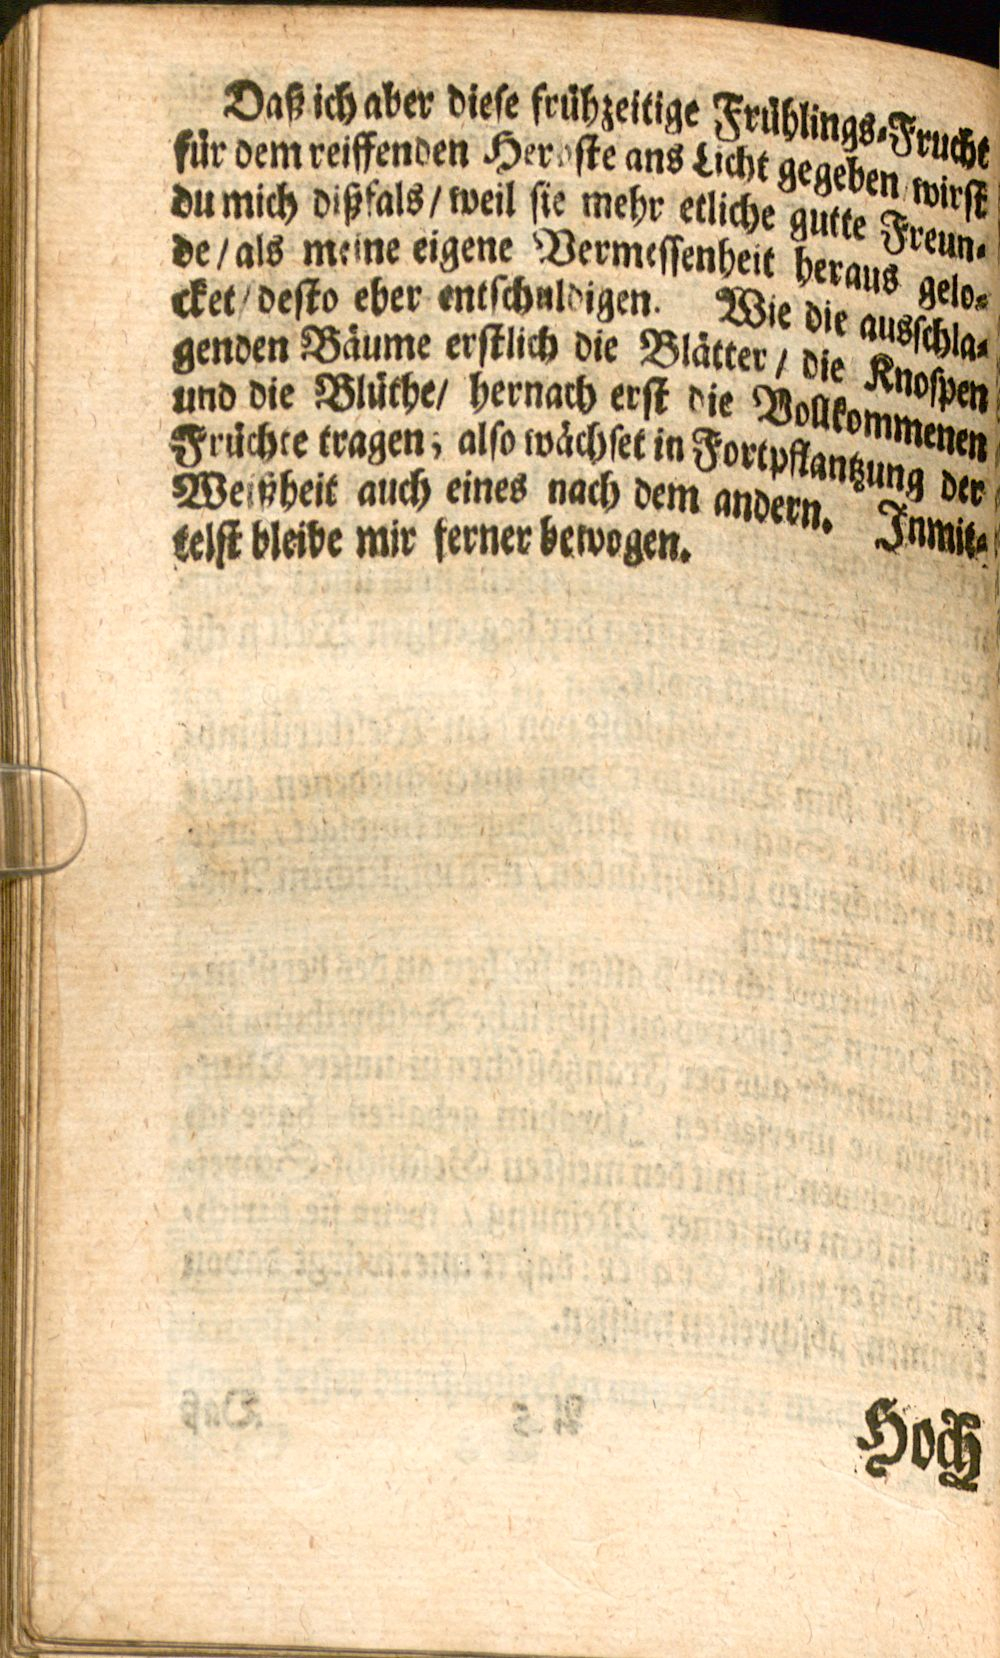 Daß ich aber dieſe frühzeitige Frühlings-Frucht
für dem reiffenden Herbſte ans Licht gegeben / wirſt
du mich dißfals / weil ſie mehr etliche gutte Freun-
de / als meine eigene Vermeſſenheit heraus gelo-
cket / deſto eber entſchuldigen. Wie die ausſchla-
genden Bäume erſtlich die Blätter / die Knoſpen
und die Blüthe / hernach erſt die Vollkommenen
Früchte tragen; alſo wächſet in Fortpflantzung der
Weißheit auch eines nach dem andern. Inmit-
telſt bleibe mir ferner bewogen.
Hoch